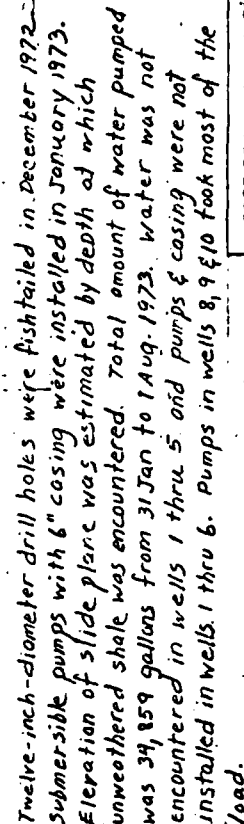 Twelve-inch-diameter drill holes were fishtailed in December 1972
Submersible pumps with 6" casing were installed in January 1973.
Elevation of slide plane was estimated by depth at which
unweathered shale was encountered. Total amount of water pumped
was 34,859 gallons from 31 Jan to 1 Aug. 1973. Water was not
encountered in wells 1 thru 5 and pumps & casing were not
installed in wells 1 thru 6. Pumps in wells 8, 9 & 10 took most of the
load.